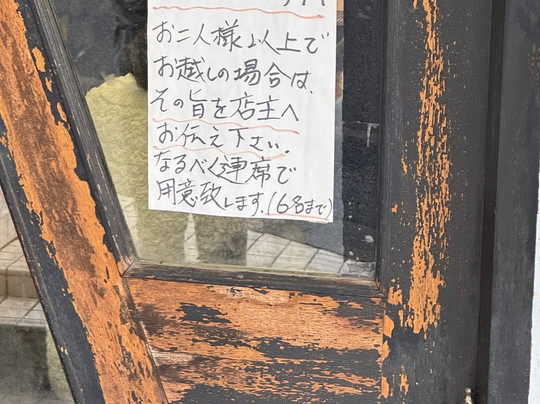 お二人様以上で
お越しの場合は、
その旨を店主へ
お伝え下さい。
なるべく連席で
用意致します。(6名まで)